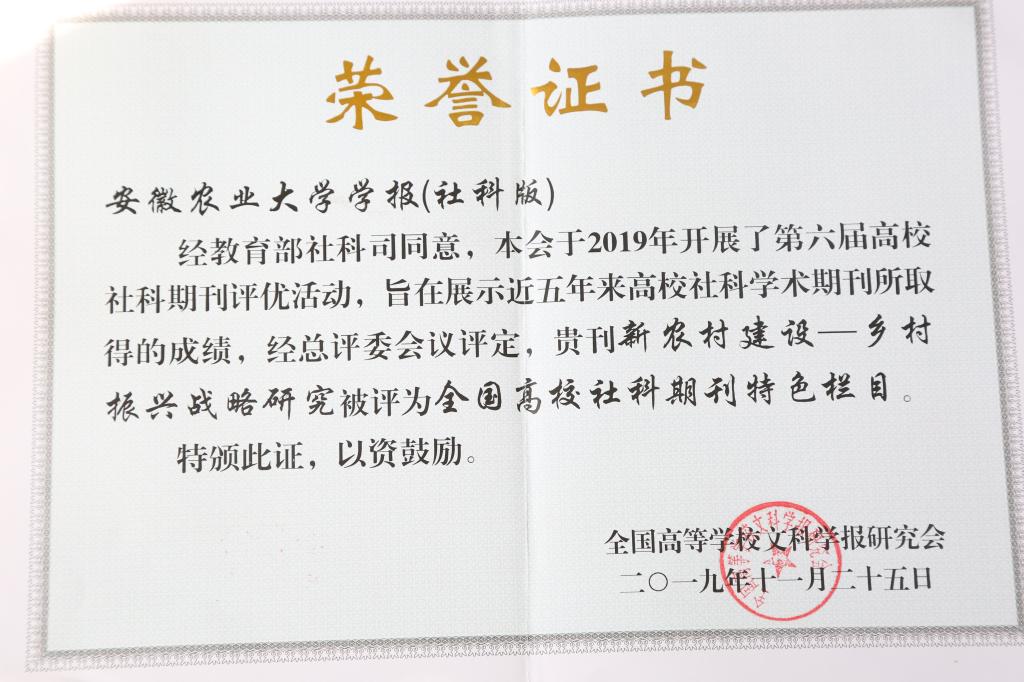 荣誉证书
安徽农业大学学报(社科版)
经教育部社科司同意，本会于2019年开展了第六届高校
社科期刊评优活动，旨在展示近五年来高校社科学术期刊所取
得的成绩，经总评委会议评定，贵刊新农村建设—乡村
振兴战略研究被评为全国高校社科期刊特色栏目。
特颁此证，以资鼓励。
全国高等学校文科学报研究会
二〇一九年十一月二十五日